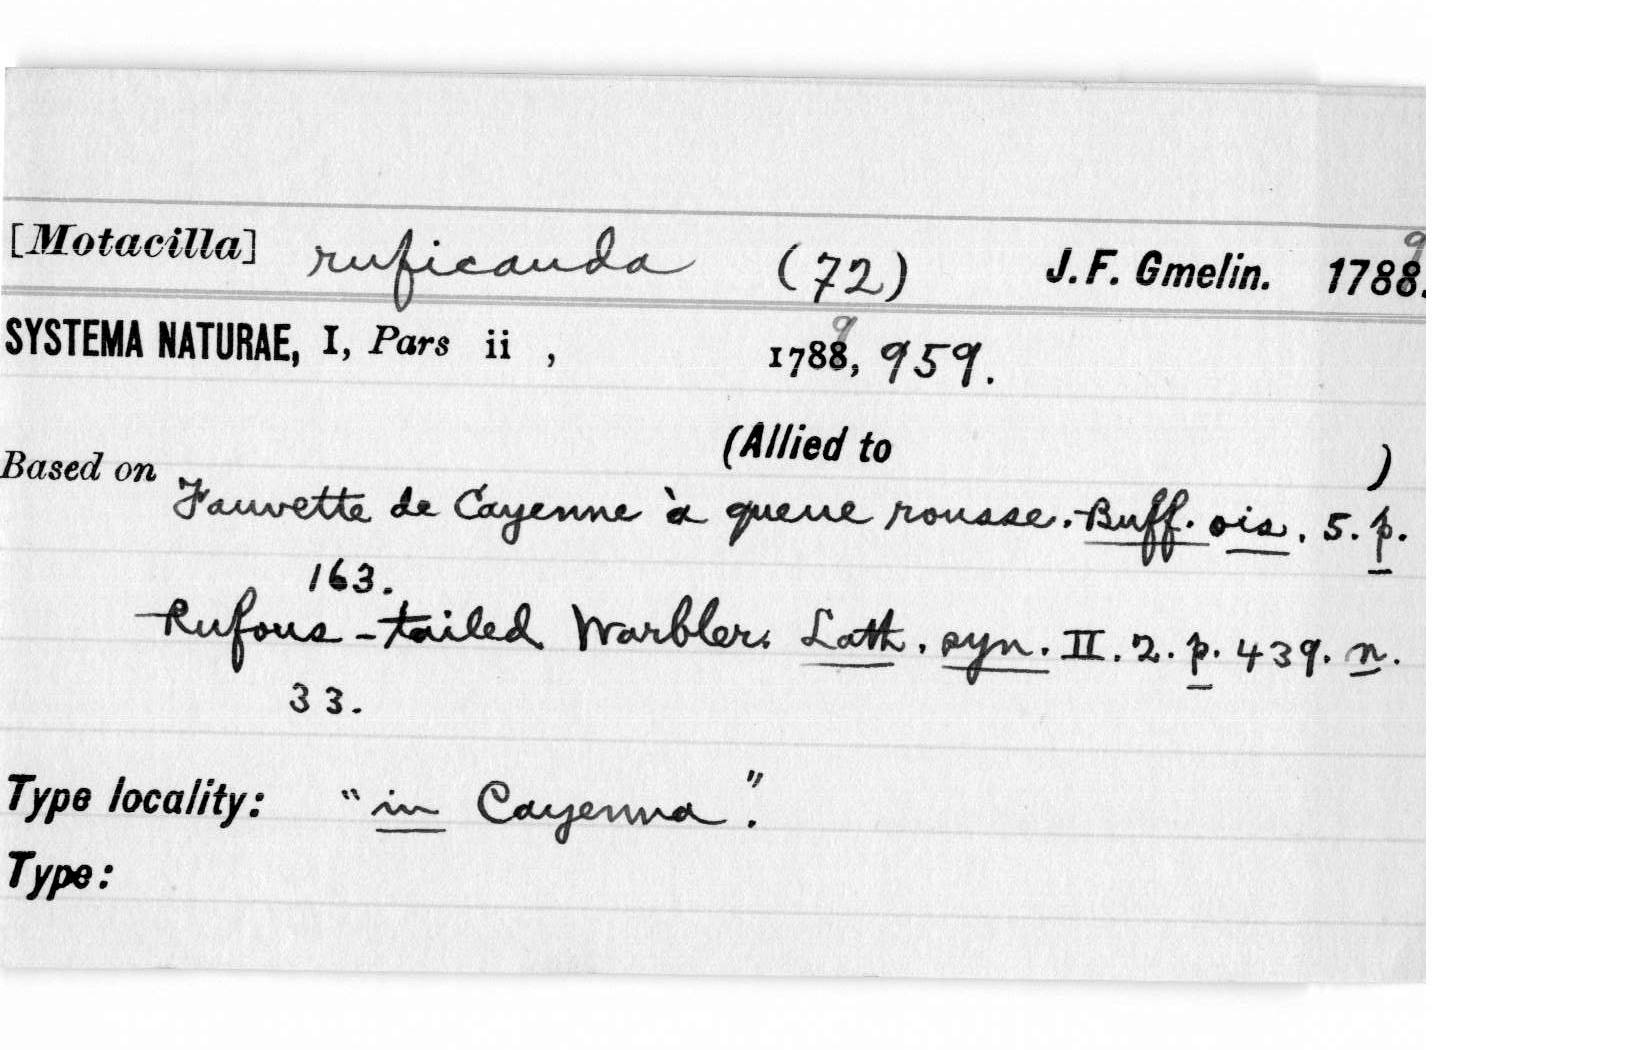 [Motacilla] ruficauda (72) J. F. Gmelin. 17889.
SYSTEMA NATURAE, I, Pars ii , 17889, 959.
(Allied to )
Based on Fauvette de Cayenne à queue rousse. Buff. ois. 5. p.
163.
Rufous-tailed Warbler. Lath. syn. II. 2. p. 439. n.
33.
Type locality: "in Cayenna".
Type: